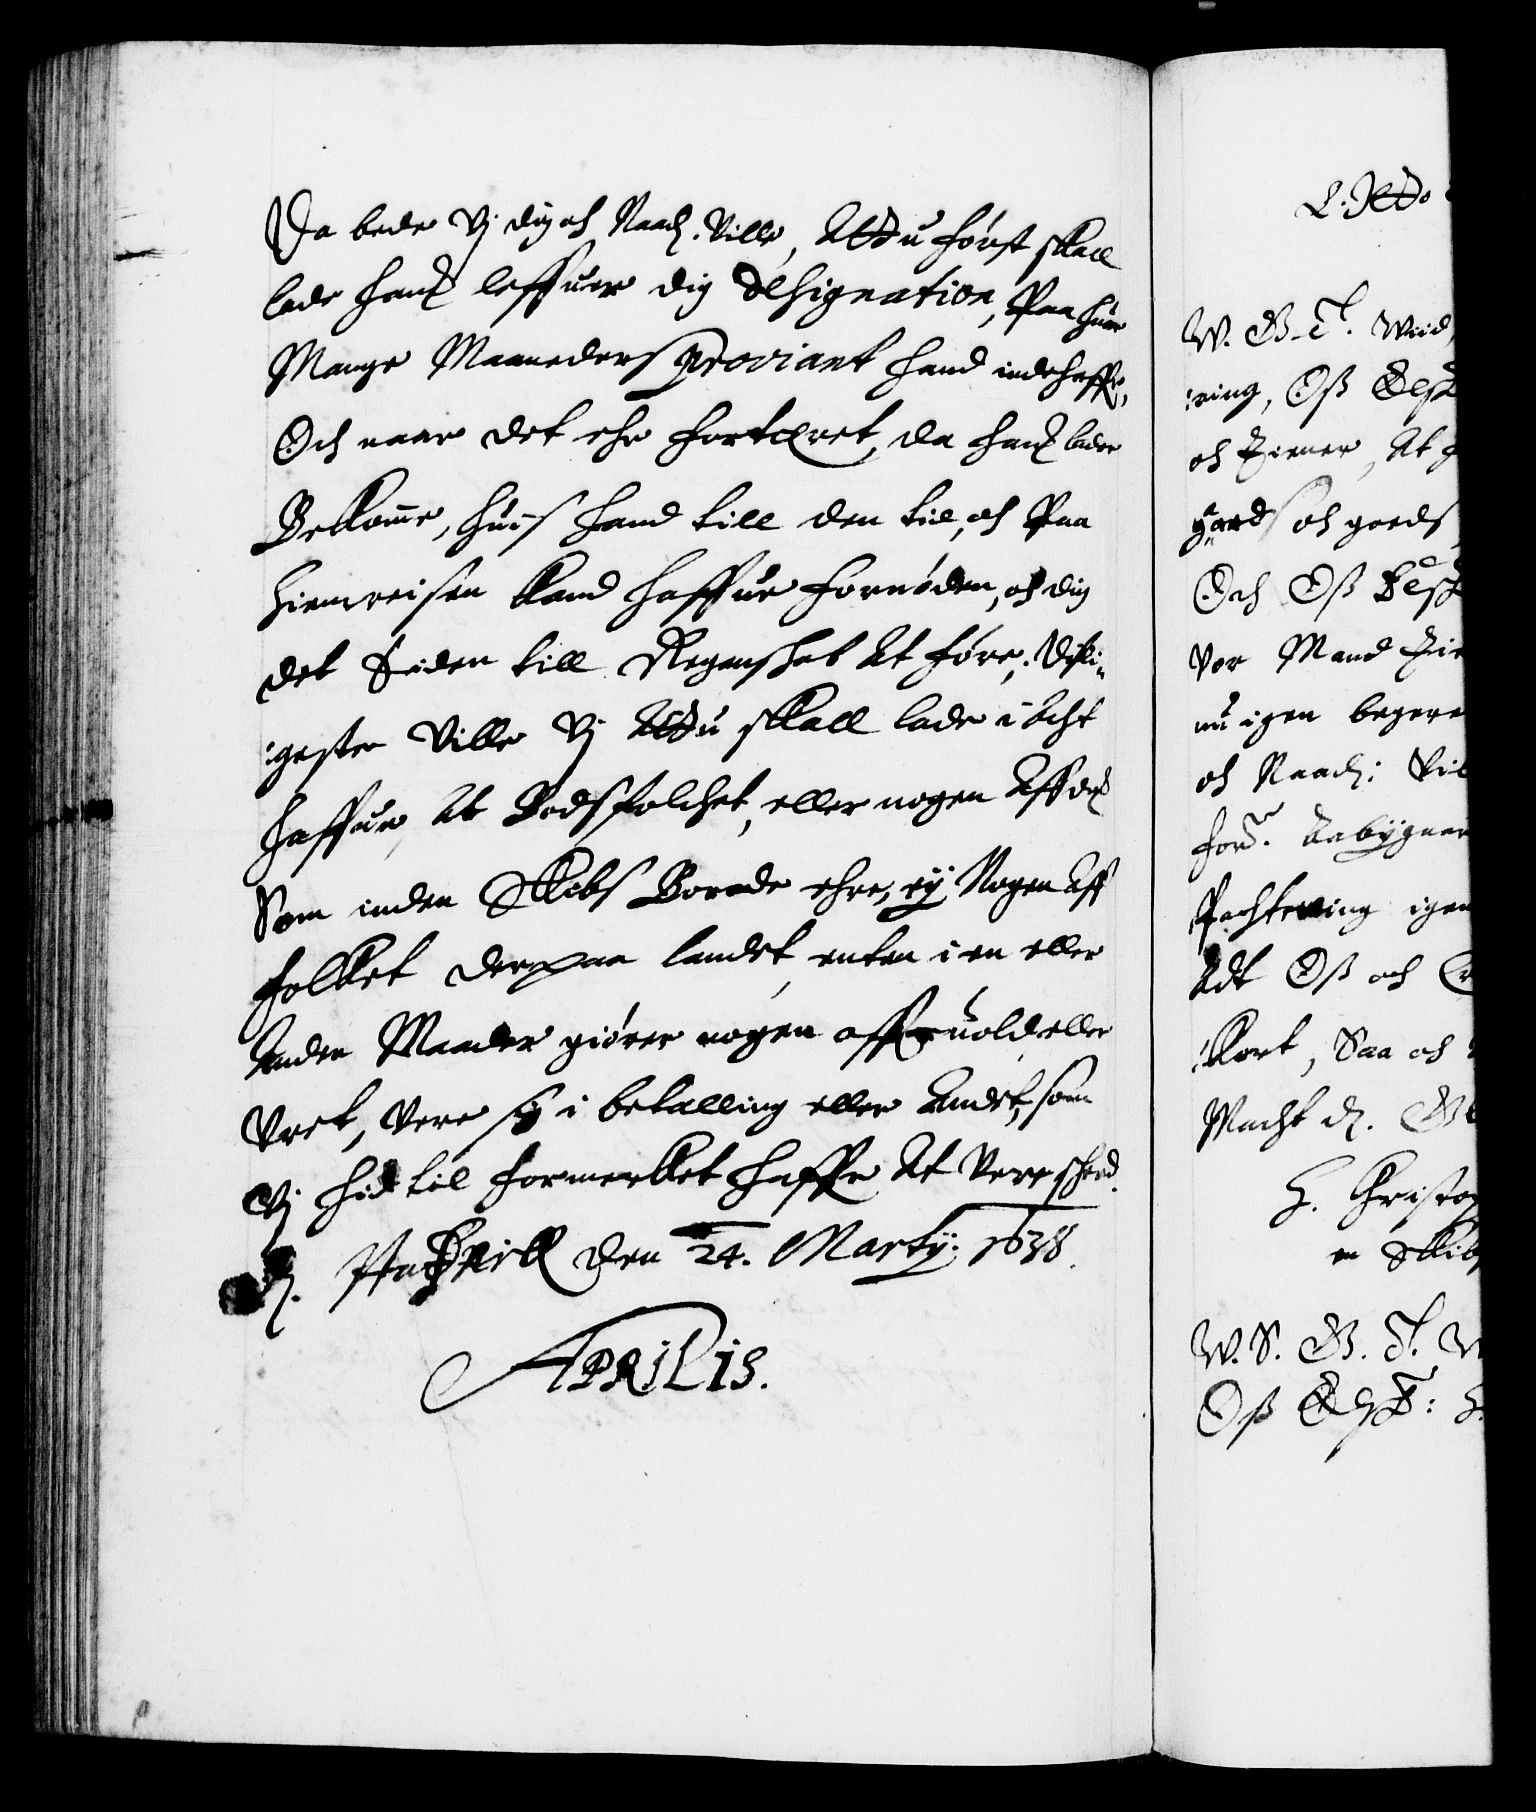 Da bede Vj dig och Naad. Ville, Attdu først skall
lade hannem leffuer dig designation, Paa huor
Mange Maaneders proviant hand indehaffr,
Och naar det ehr fortæret, da hannem lader
Bekomme, huis hand till den tid, och Paa
Hiemreisen kand haffue fornøden, och dig
det Siden till Regenskab At føre. Disli-
:geste Ville Vj Attdu skall lade i Acht
haffue, At Bodsfolchet, eller nogen Aff dem
Som inden Skibs Borde ehre, ey Nogen Aff
folket der paa landet, enten i en eller
Anden Maader giører nogen offueruold eller
Vret, Vere sig i betalling eller Andet, som
Vj hid til formerket haffe At Vere scheed.
Den 24. Martij: 1638.
APRILis.
W. G. T. Wiid
:ring, Oß Elsk
och Tiener, At
gaard och goeds
Och Oß Elsk
Vor Mand
nu igen begere
och Naad: Vil
ford. Aabygner
Forhtering igen
Adt Oß och
:kort, Saa och
Macht d.
H. Christop
en Skib
W. S. G. T.
Oß Elsk: H.